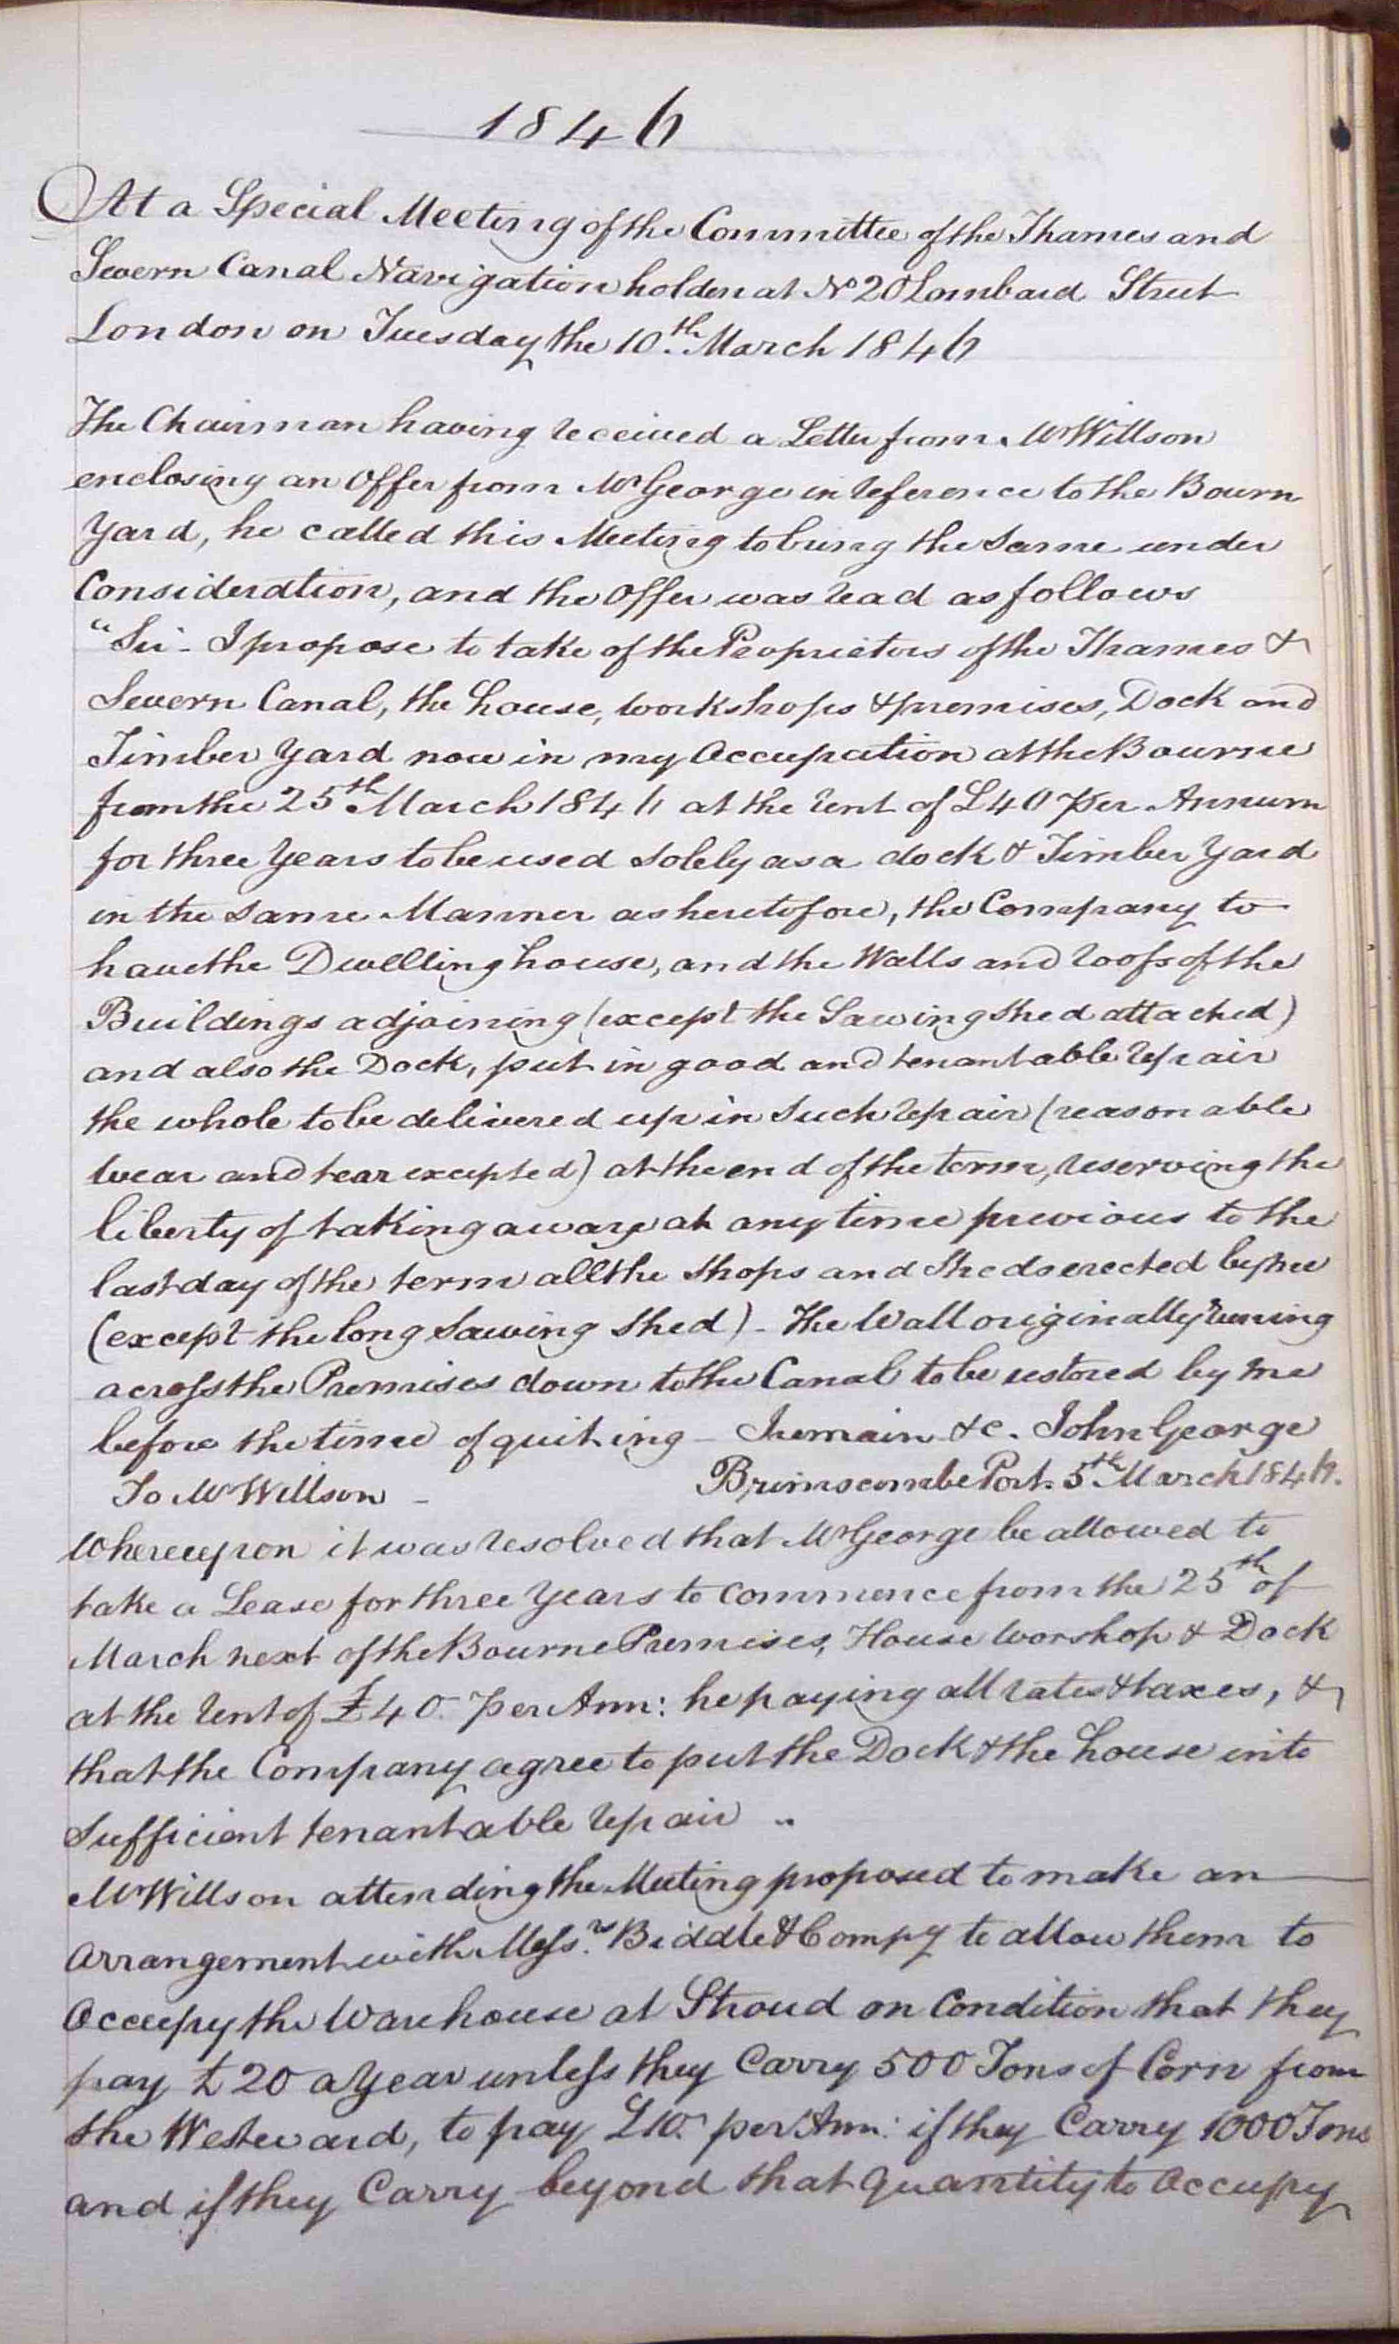 1846
At a Special Meeting of the Committee of the Thames and
Severn Canal Navigation holden at No 20 Lombard Street
London on Tuesday the 10th March 1846
The Chairman having received a Letter from Mr Willson
enclosing an Offer from Mr George in reference to the Bourn
Yard, he called this Meeting to bring the same under
Consideration, and the Offer was read as follows
"Sir - I propose to take of the Proprietors of the Thames &
Severn Canal, the house, workshops & premises, Dock and
Timber Yard now in my Occupation at the Bourne
from the 25th March 1846 at the rent of £40 per Annum
for three Years to be used solely as a dock & Timber Yard
in the same Manner as heretofore, the Company to
have the Dwelling house, and the Walls and roofs of the
Buildings adjoining (except the Sawing shed attached)
and also the Dock, put in good and tenantable repair
the whole to be delivered up in such repair (reasonable
wear and tear excepted) at the end of the term, reserving the
liberty of taking away at any time previous to the
last day of the term all the shops and sheds erected by me
(except the long sawing shed) - The Wall originally runing
across the Premises down to the Canal to be restored by me
before the time of quiting - I remain &c. John George
To Mr Willson - Brimscombe Port. 5th March 1846.
Whereupon it was resolved that Mr George be allowed to
take a Lease for three Years to commence from the 25th of
March next of the Bourne Premises, House worshop & Dock
at the rent of £40. per Ann: he paying all rates & taxes, &
that the Company agree to put the Dock & the house into
sufficient tenantable repair ..
Mr Willson attending the Meeting proposed to make an
arrangement with Messrs. Biddle & Compy to allow them to
Occupy the Warehouse at Stroud on Condition that they
pay £20 a Year unless they Carry 500 Tons of Corn from
the Westward, to pay £10. per Ann: if they Carry 1000 Tons
and if they Carry beyond that quantity to Occupy